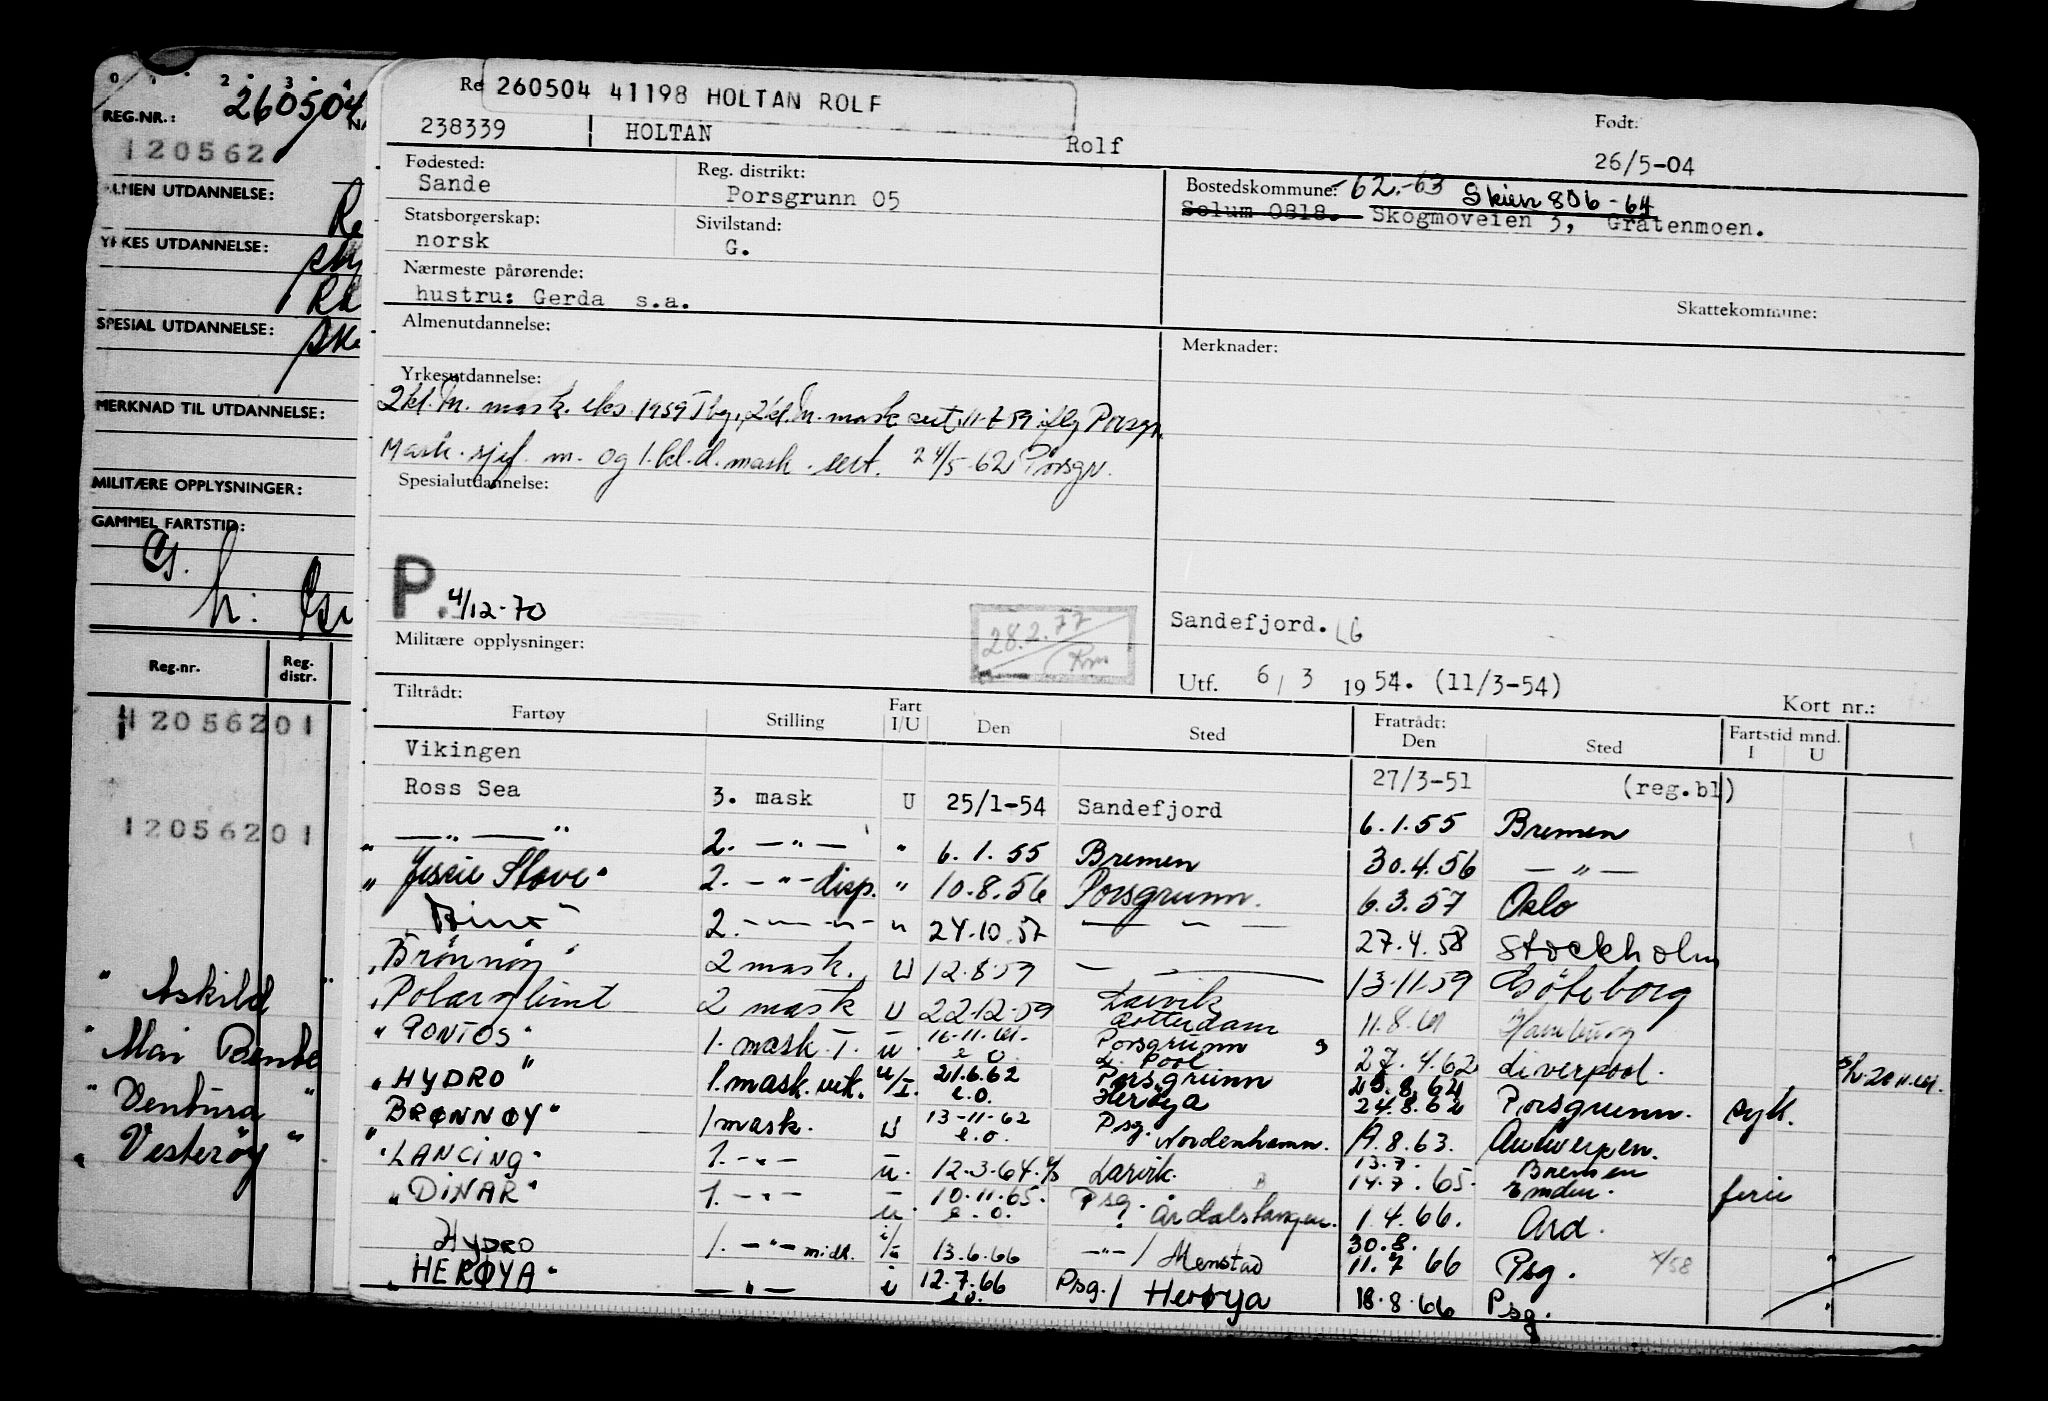 0 1 2 3 4
REG.NR.: 260504
120562
ALMEN UTDANNELSE:
YRKES UTDANNELSE:
SPESIAL UTDANNELSE:
MERKNAD TIL UTDANNELSE:
MILITÆRE OPPLYSNINGER:
GAMMEL FARTSTID:
Reg.nr. Reg. distr.
12056201
12056201
" Askild "
" Mai Bente
" Ventura "
" Vesterøy "
Re 260504 41198 HOLTAN ROLF
238339 HOLTAN Rolf Født: 26/5-04
Fødested: Sande Reg. distrikt: Porsgrunn 05 Bostedskommune: -62.-63 Skien 806-64
Selum 0818. Skogmoveien 3, Gråtenmoen.
Statsborgerskap: norsk Sivilstand: G.
Nærmeste pårørende: hustru: Gerda s.a. Skattekommune:
Almenutdannelse: Merknader:
Yrkesutdannelse:
2kl. m. mask. eks. 1959 Tbg., 2kl. m. mask sert. 11-7-59 iflg Porsgr.
Mask. sjef. m. og 1.kl.d. mask. sert. 24/5-62 Porsgr.
Spesialutdannelse:
P. 4/12-70
28.2.77
Sandefjord. LG
Militære opplysninger:
Utf. 6/3 1954. (11/3-54) Kort nr.:
Tiltrådt: Fratrådt: Fartstid mnd.
Fartøy Stilling Fart I/U Den Sted Den Sted I U
Vikingen 27/3-51 (reg.bl)
Ross Sea 3. mask U 25/1-54 Sandefjord 6.1.55 Bremen
—"— " 2. —"— " 6.1.55 Bremen 30.4.56 —"—
" Jessie Stove " 2. —"— disp. " 10.8.56 Porsgrunn. 6.3.57 Oslo
2. —"— " 24.10.57 — " — 27.4.58 Stockholm
" Brønnøy " 2 mask. U 12.8.59 — 13.11.59 Göteborg
" Polarglimt 2 mask U 22.12.59 Larvik Rotterdam 11.8.61 Hamburg
" PONTOS " 1. mask. T. u 16.11.61. e.o. Porsgrunn L.Pool 27.4.62 Liverpool. 20.11.61.
" HYDRO " 1. mask. vik. u/I. 21.6.62 e.o. Porsgrunn Herøya 24.8.62 Porsgrunn. syk.
BRØNNØY " 1 mask. U 13-11-62 e.o. Psg. Nordenhamn. 8.63. Antwerpen.
" LANCING " 1. —"— u. 12.3.64. Larvik. 13.7. 14.7.65. Bremen Emden. ferie
" DINAR " 1. —"— u. 10.11.65. e.o. Psg. Årdalstangen. 1.4.66. Ård.
HYDRO 1. —"— midl. 13.6.66 —"— / Menstad 30.8. 11.7 66 Psg. x/58 "
" HERØYA " —"— i 12.7.66 e.o. Psg. / Herøya 18.8.66 Psg. "